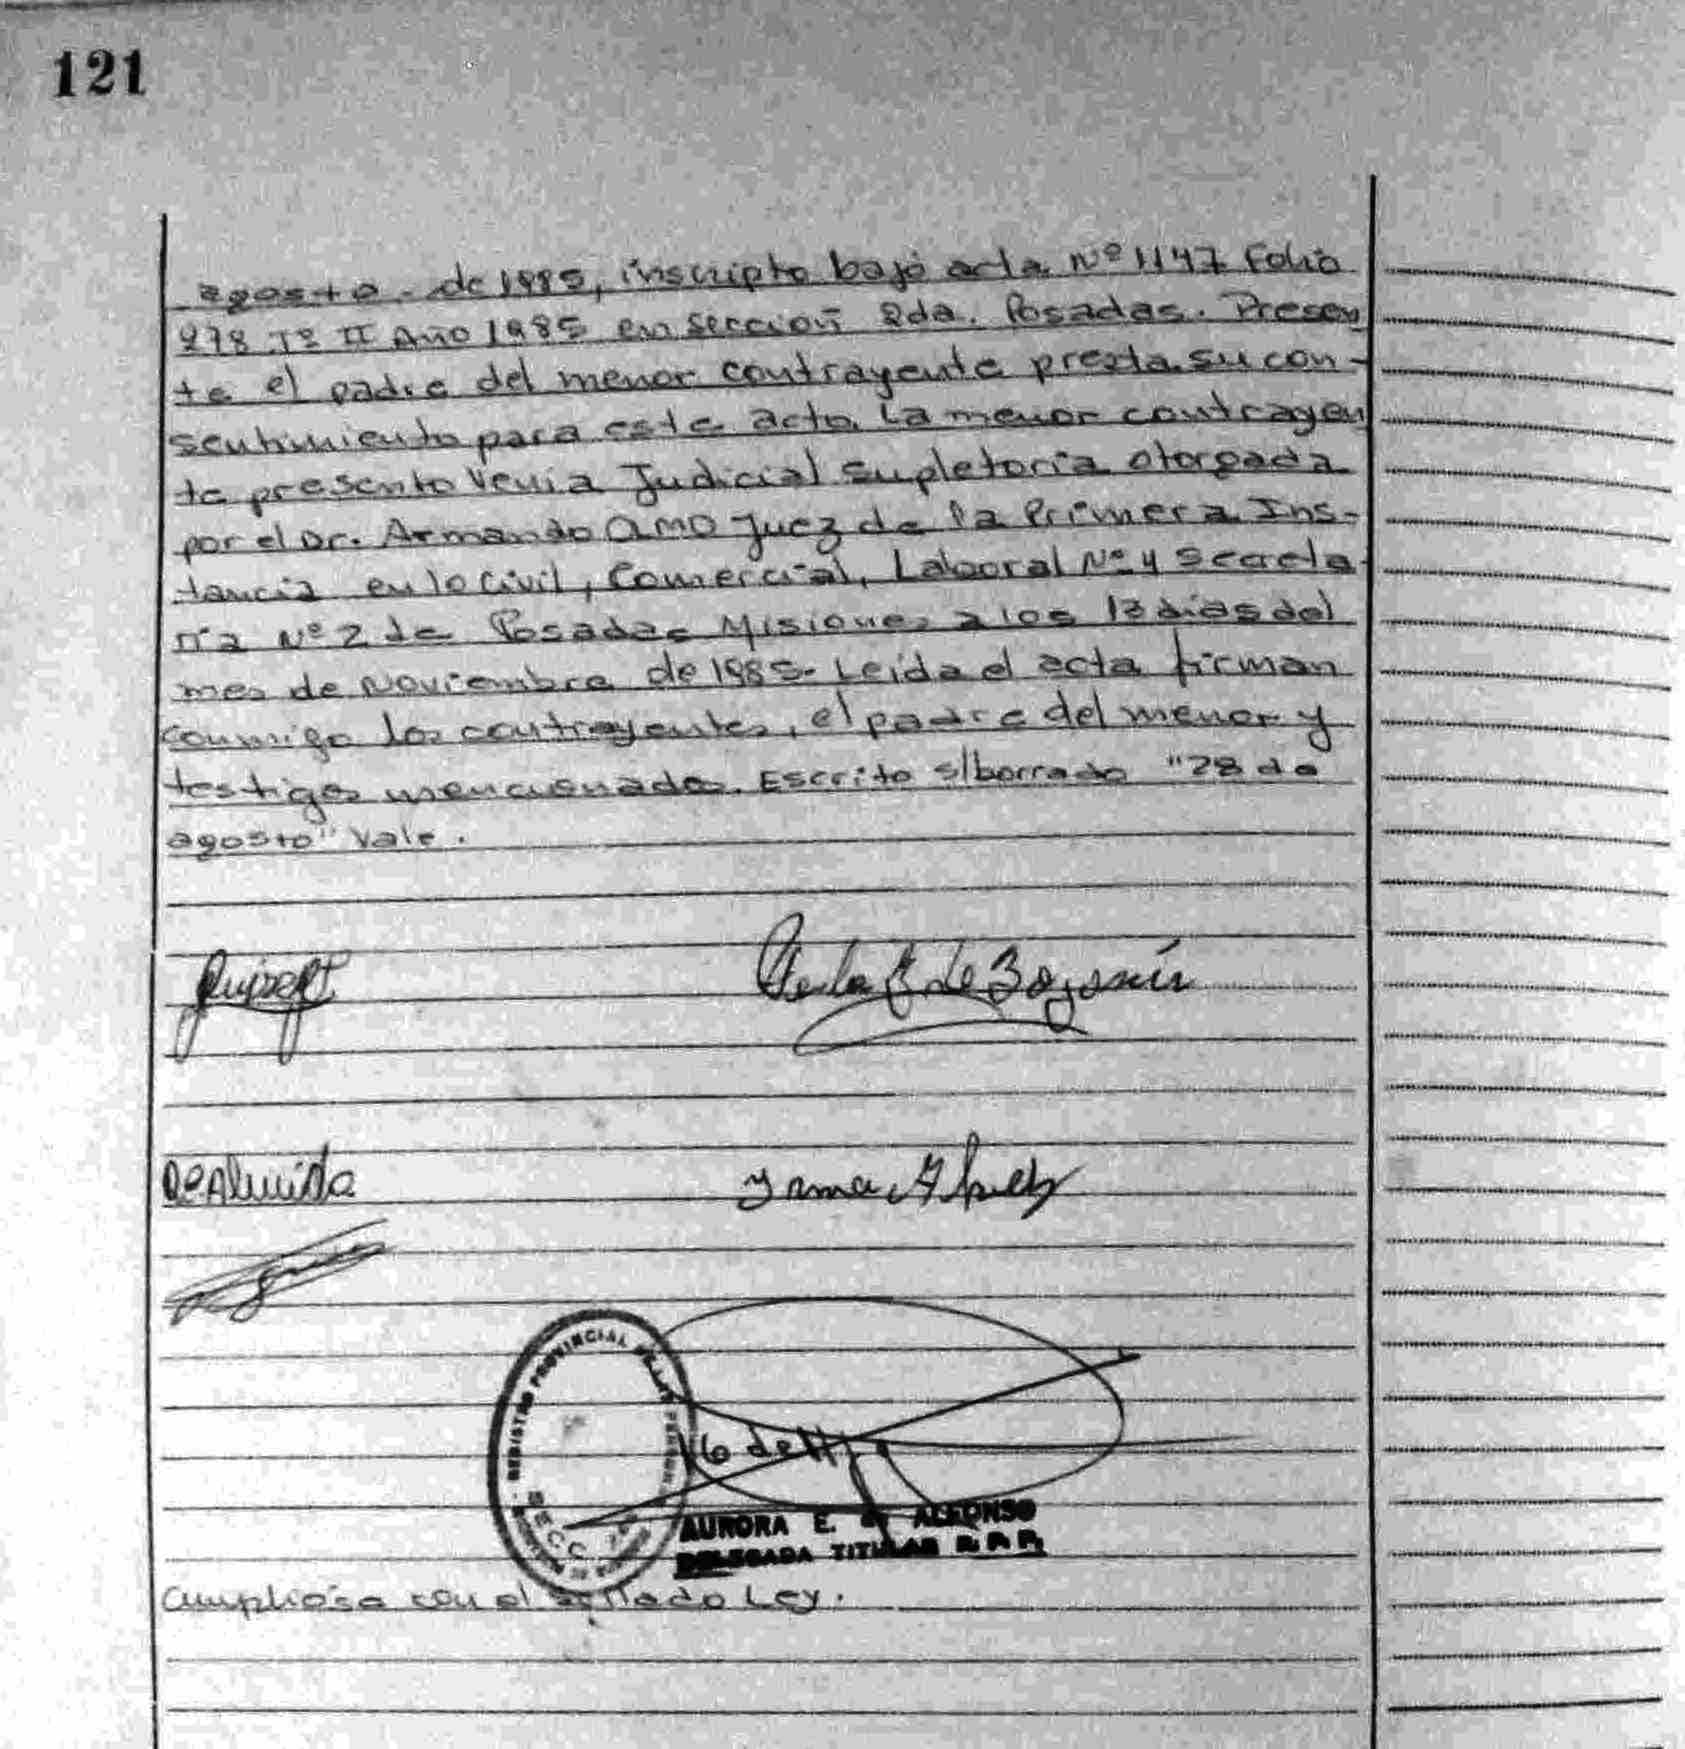 121
agosto - de 1985, inscripto bajo acta Nº 1147 Folio
278 Tº II Año 1985 en sección 2da. Posadas. Presen
te el padre del menor contrayente presta su con-
sentimiento para este acto. La menor contrayen
te presento Venia Judicial Supletoria otorgada
por el Dr. Armando Juez de la Primera Ins-
tancia en lo Civil, Comercial, Laboral Nº 4 Secreta-
ria Nº 2 de Posadas Misiones a los 13 días del
mes de Noviembre de 1985. Leída el acta firman
conmigo los contrayentes, el padre del menor y
testigos mencionados. Escrito s/borrado "28 de
agosto" Vale.
De Almida
REGISTRO PROVINCIAL DE LAS PERSONAS
SECC.
AURORA E. ALFONSO
DELEGADA TITULAR R. P. P.
Cumpliose con el sellado Ley.